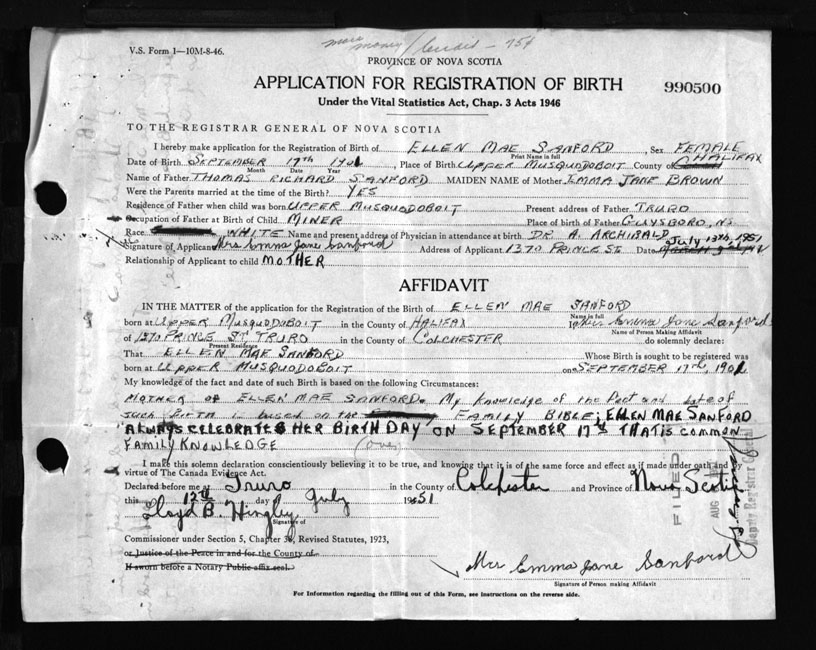 more money / Credit - 75¢
V.S. Form 1—10M-8-46.
PROVINCE OF NOVA SCOTIA
APPLICATION FOR REGISTRATION OF BIRTH
990500
Under the Vital Statistics Act, Chap. 3 Acts 1946
TO THE REGISTRAR GENERAL OF NOVA SCOTIA
I hereby make application for the Registration of Birth of ELLEN MAE SANFORD, Sex FEMALE
Print Name in full
Date of Birth SEPTEMBER 17th 1901, Place of Birth UPPER MUSQUODOBOIT County of HALIFAX
Month Date Year
Name of Father THOMAS RICHARD SANFORD MAIDEN NAME of Mother EMMA JANE BROWN
Were the Parents married at the time of the Birth? YES
Residence of Father when child was born UPPER MUSQUODOBOIT Present address of Father TRURO
Occupation of Father at Birth of Child MINER Place of birth of Father GUYSBORO, N.S
Race WHITE Name and present address of Physician in attendance at birth DR. A. ARCHIBALD
Signature of Applicant Mrs Emma Jane Sanford Address of Applicant 1370 PRINCE ST Date July 13th, 1951
Relationship of Applicant to child MOTHER
AFFIDAVIT
IN THE MATTER of the application for the Registration of the Birth of ELLEN MAE SANFORD
Name in full
born at UPPER MUSQUODOBOIT in the County of HALIFAX I Mrs Emma Jane Sanford
Name of Person Making Affidavit
of 1370 PRINCE ST TRURO in the County of COLCHESTER do solemnly declare:
Present Residence
That ELLEN MAE SANFORD Whose Birth is sought to be registered was
born at UPPER MUSQUODOBOIT on SEPTEMBER 17th, 1901
My knowledge of the fact and date of such Birth is based on the following Circumstances:
MOTHER OF ELLEN MAE SANFORD. My Knowledge of the Fact and date of
such birth is based on the FAMILY BIBLE; ELLEN MAE SANFORD
ALWAYS CELEBRATES HER BIRTHDAY ON SEPTEMBER 17th THAT IS COMMON
FAMILY KNOWLEDGE (over)
I make this solemn declaration conscientiously believing it to be true, and knowing that it is of the same force and effect as if made under oath and by
virtue of The Canada Evidence Act.
Declared before me at Truro in the County of Colchester and Province of Nova Scotia
this 13th day July 1951
Lloyd B. Hingley
Signature of
Commissioner under Section 5, Chapter 38, Revised Statutes, 1923,
or Justice of the Peace in and for the County of
If sworn before a Notary Public affix seal.
FILED
AUG
Deputy Registrar General
Mrs Emma Jane Sanford
Signature of Person making Affidavit
For Information regarding the filling out of this Form, see instructions on the reverse side.